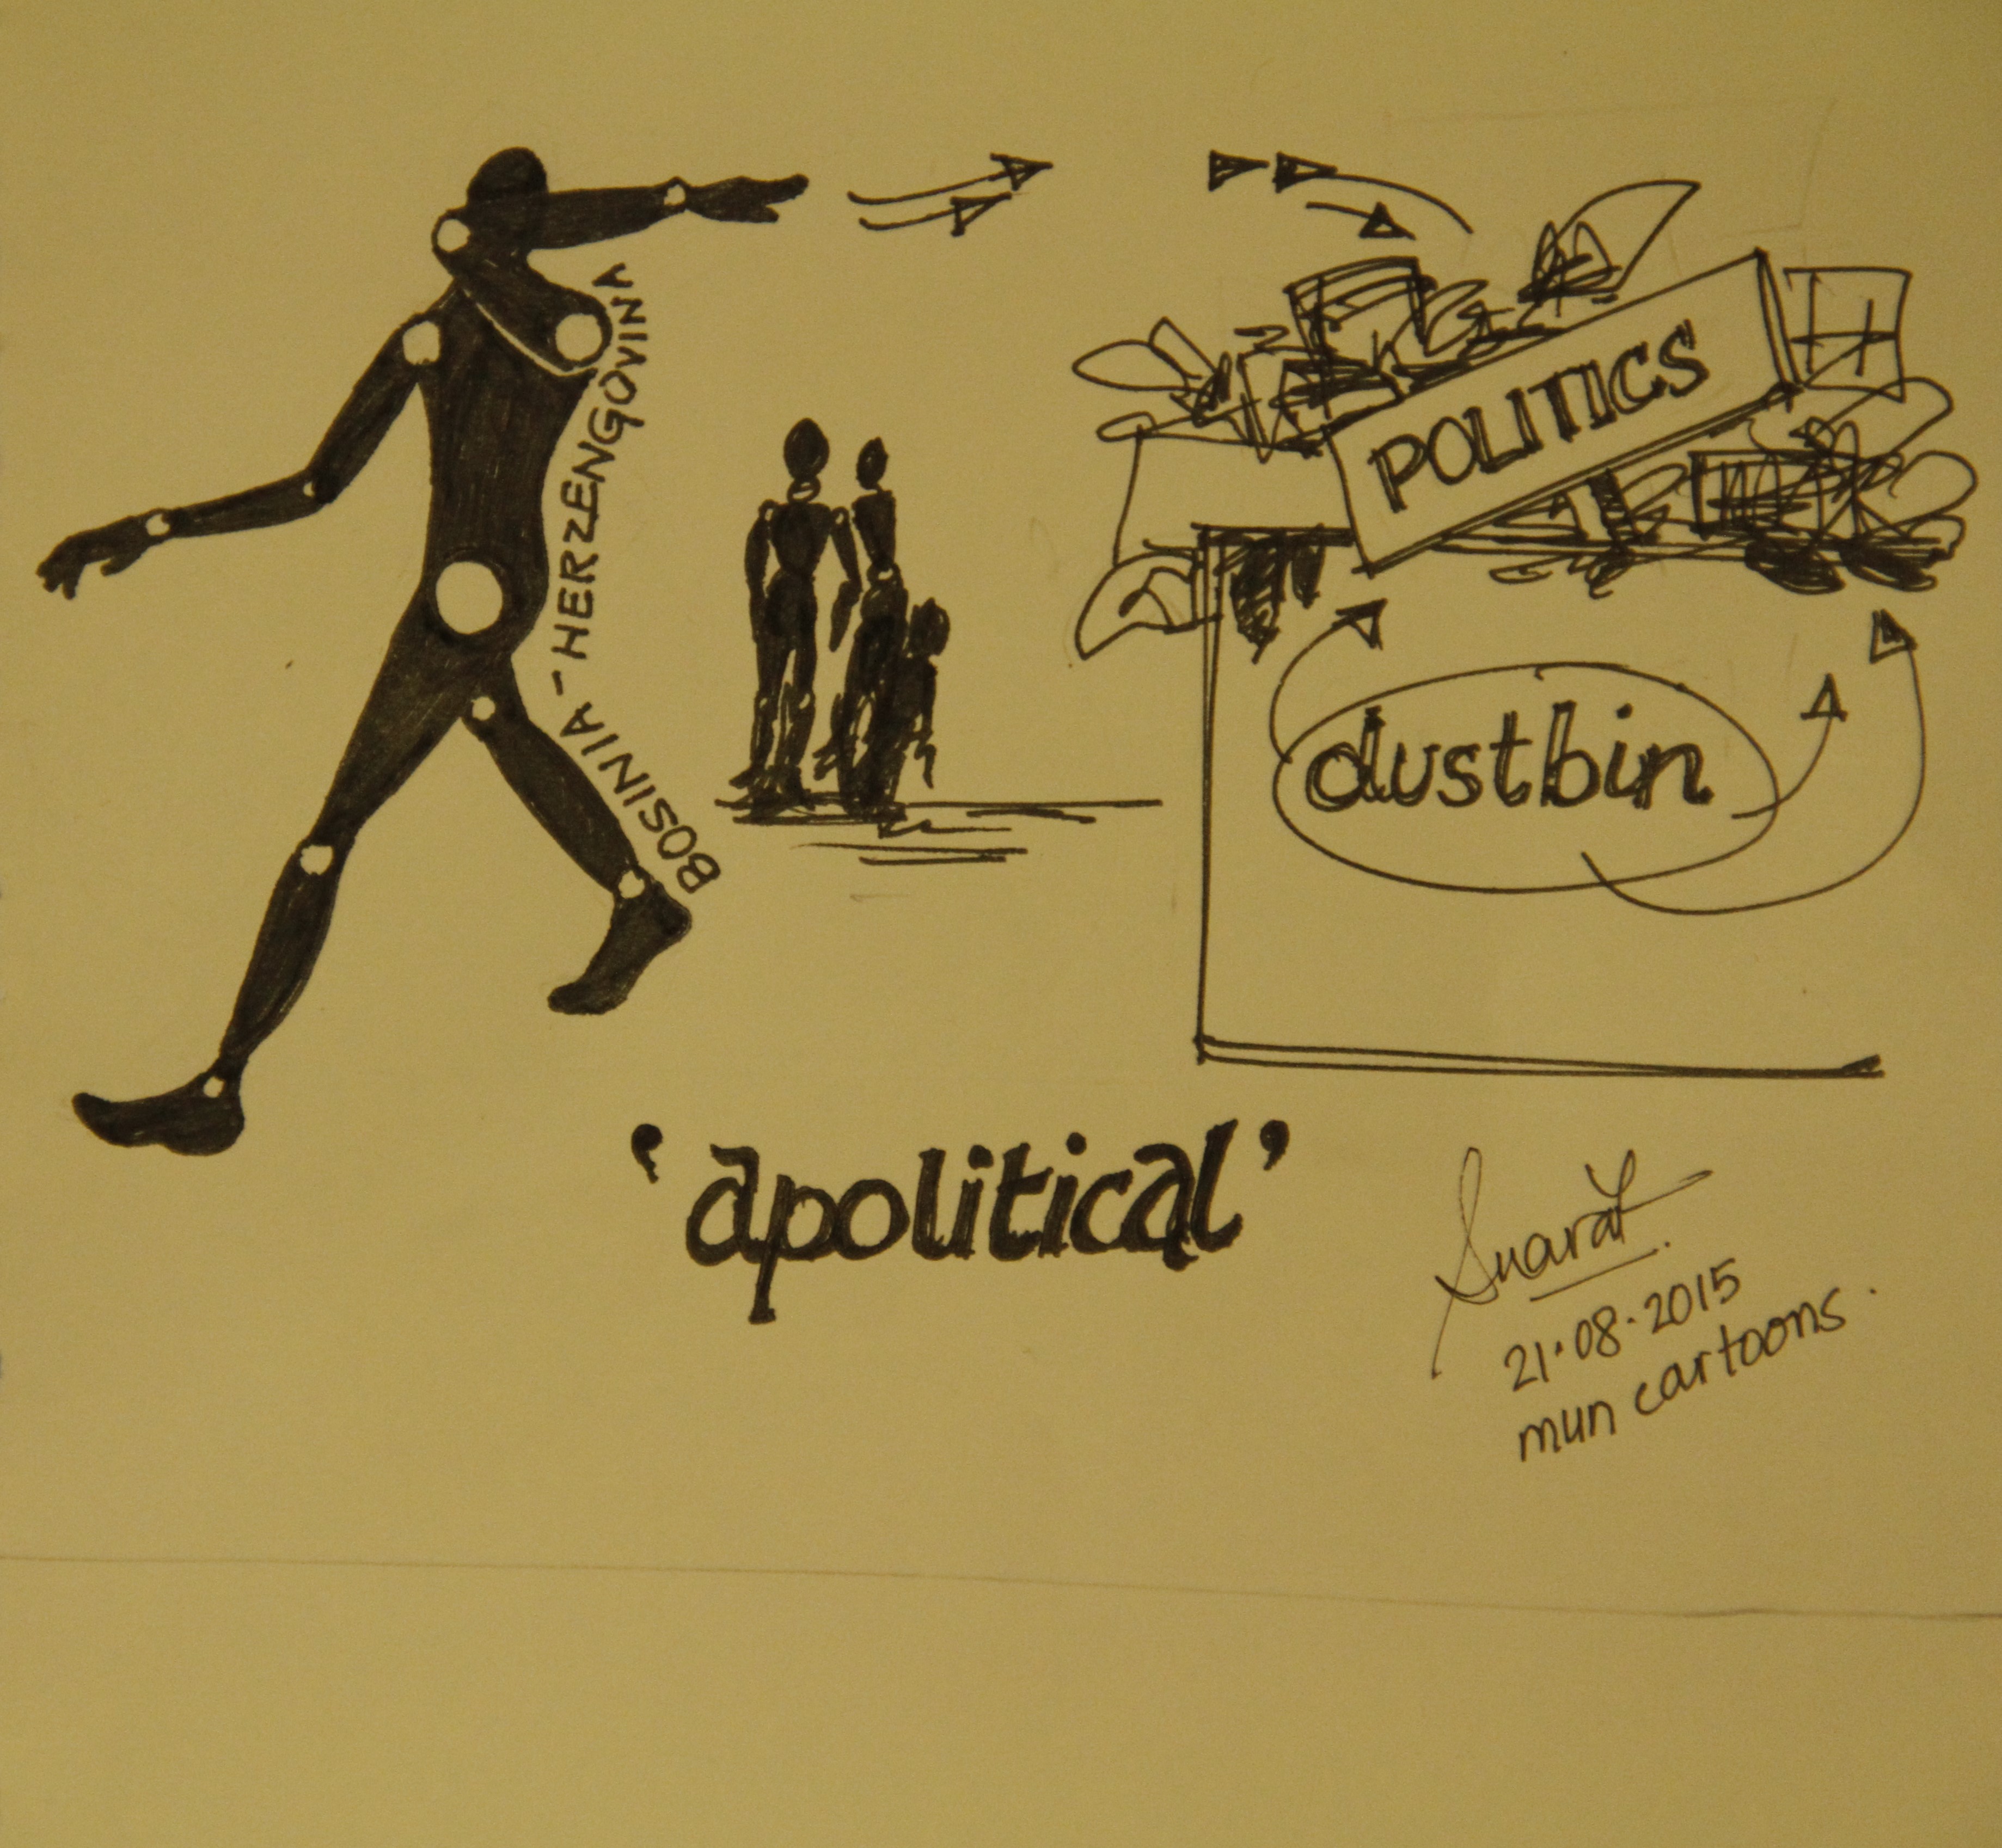 BOSINIA - HERZENGOVINA
POLITICS
dustbin
'apolitical'
21.08.2015
mun cartoons.